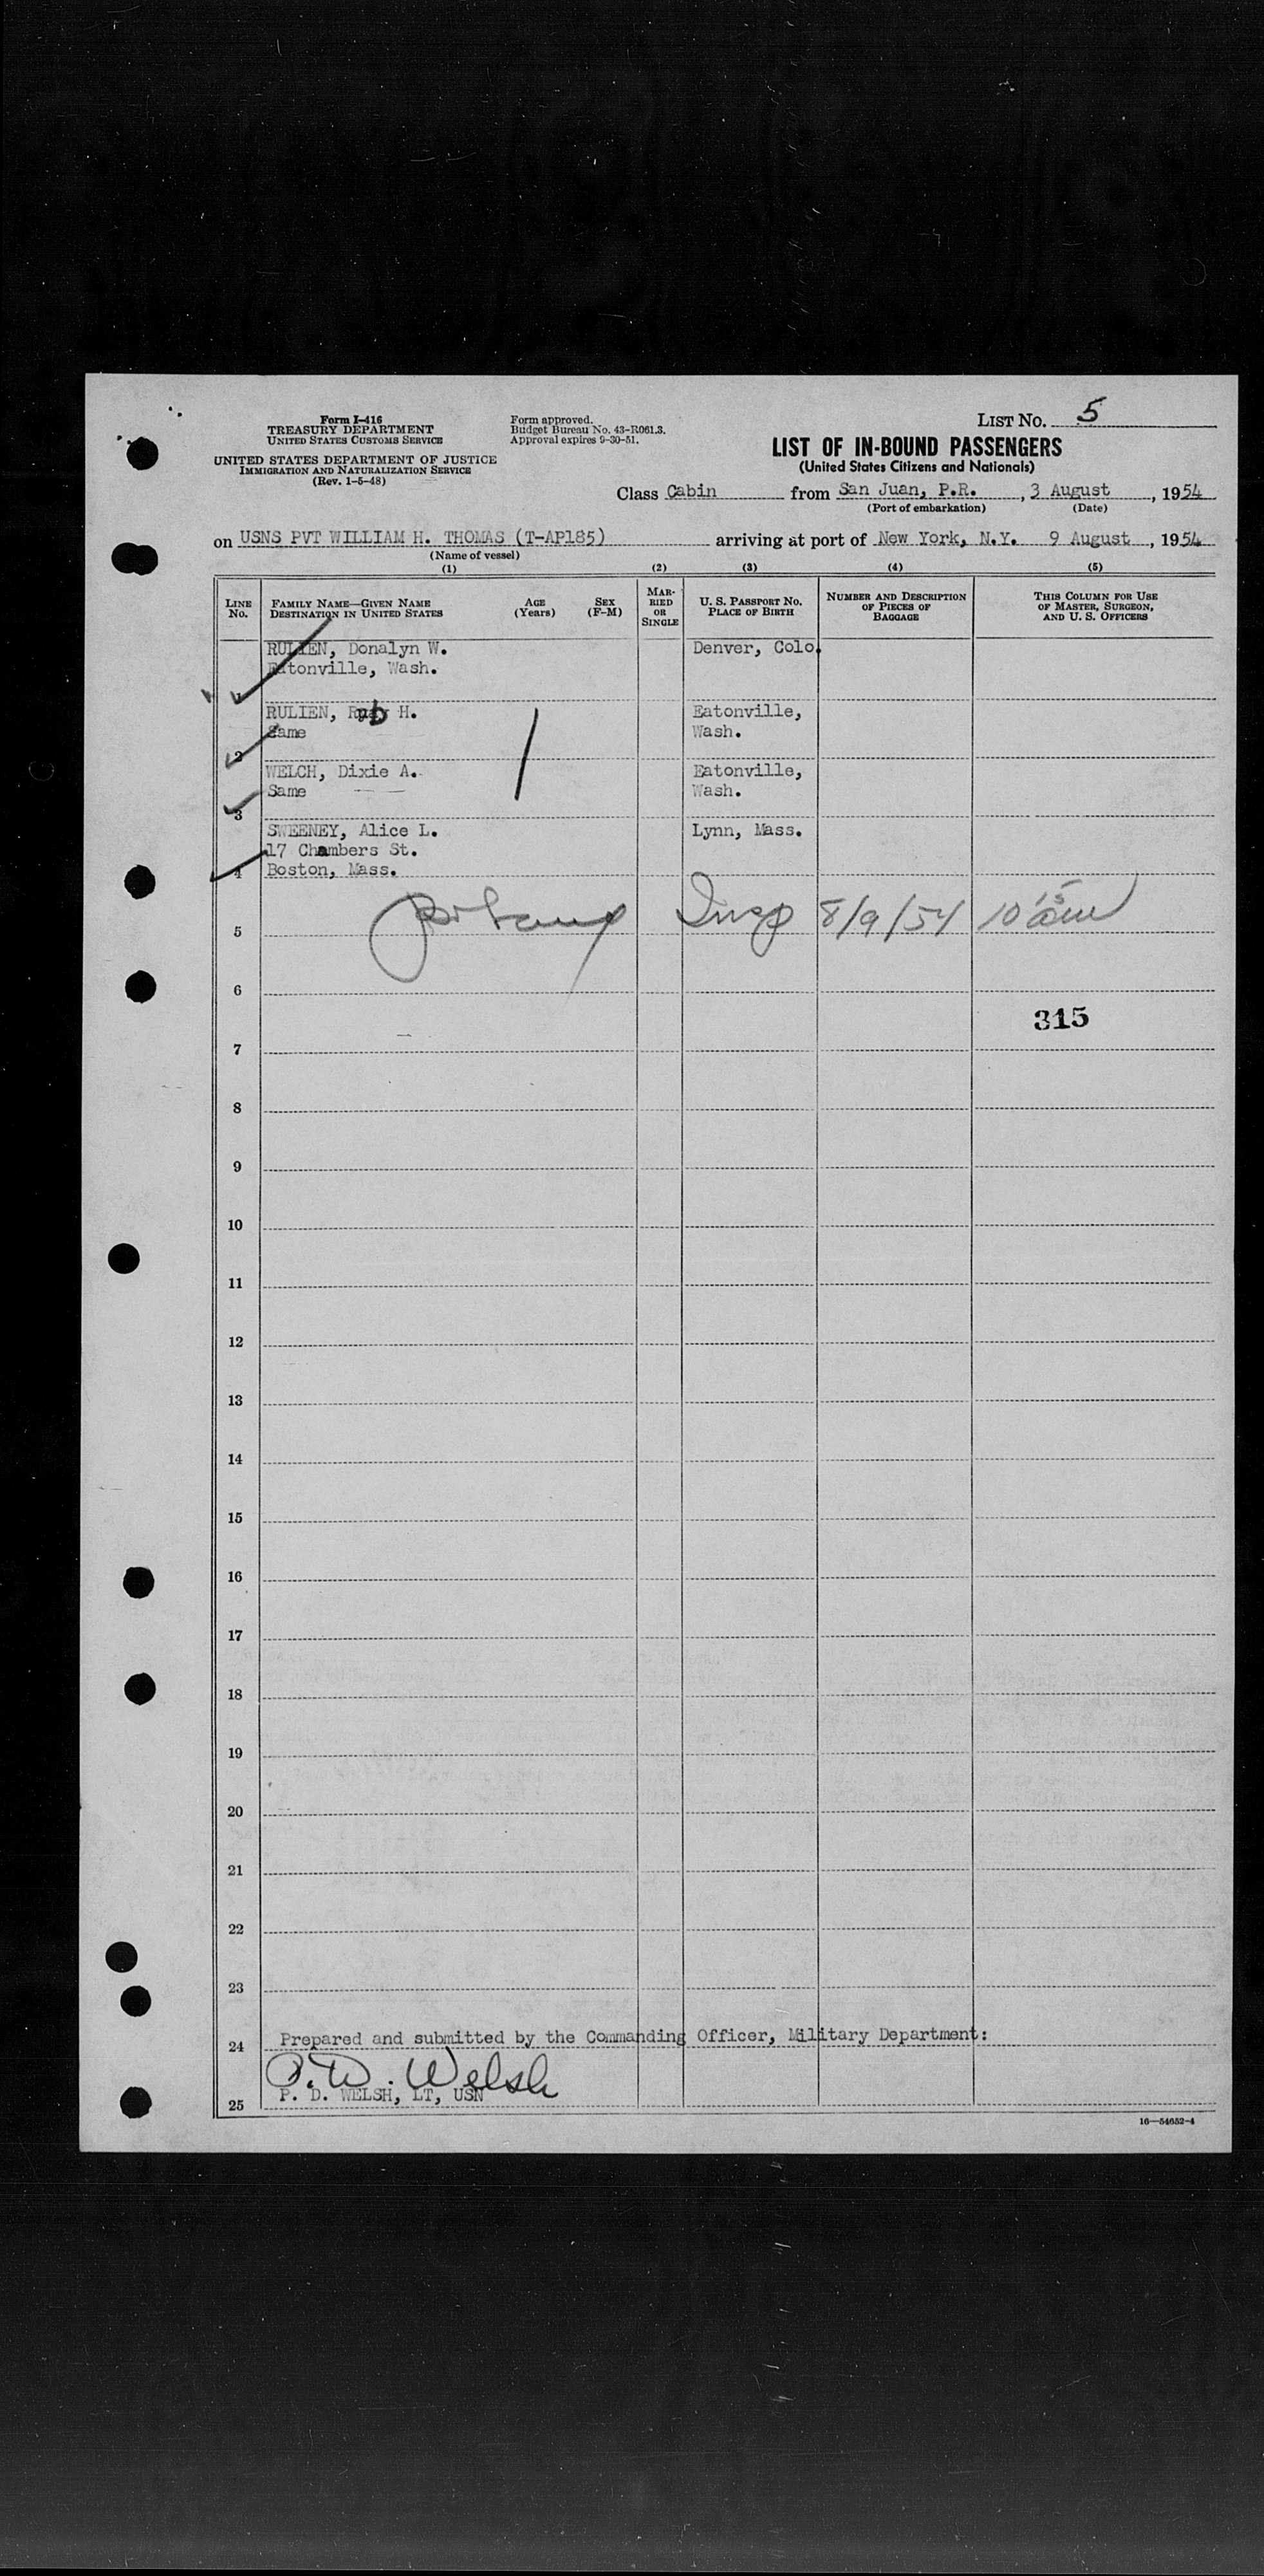 Form I-416
TREASURY DEPARTMENT
UNITED STATES CUSTOMS SERVICE
UNITED STATES DEPARTMENT OF JUSTICE
IMMIGRATION AND NATURALIZATION SERVICE
(Rev. 1-5-48)
Form approved.
Budget Bureau No. 43-R061.3.
Approval expires 9-30-51.
LIST NO. 5
LIST OF IN-BOUND PASSENGERS
(United States Citizens and Nationals)
Class Cabin from San Juan, P.R. , 3 August , 1954
(Port of embarkation) (Date)
on USNS PVT WILLIAM H. THOMAS (T-AP185) arriving at port of New York, N.Y. 9 August , 1954
(Name of vessel)
(1) (2) (3) (4) (5)
LINE NO. FAMILY NAME—GIVEN NAME DESTINATION IN UNITED STATES AGE (Years) SEX (F-M) MARRIED OR SINGLE U. S. PASSPORT NO. PLACE OF BIRTH NUMBER AND DESCRIPTION OF PIECES OF BAGGAGE THIS COLUMN FOR USE OF MASTER, SURGEON, AND U. S. OFFICERS
RULIEN, Donalyn W. Denver, Colo.
Eatonville, Wash.
1
RULIEN, H. Eatonville,
Same Wash.
2
WELCH, Dixie A. Eatonville,
Same Wash.
3
SWEENEY, Alice L. Lynn, Mass.
17 Chambers St.
4 Boston, Mass.
5 Insp 8/9/54 10 15 am
6
315
7
8
9
10
11
12
13
14
15
16
17
18
19
20
21
22
23
Prepared and submitted by the Commanding Officer, Military Department:
24
P. D. Welsh
P. D. WELSH, LT, USN
25
16—54652-4